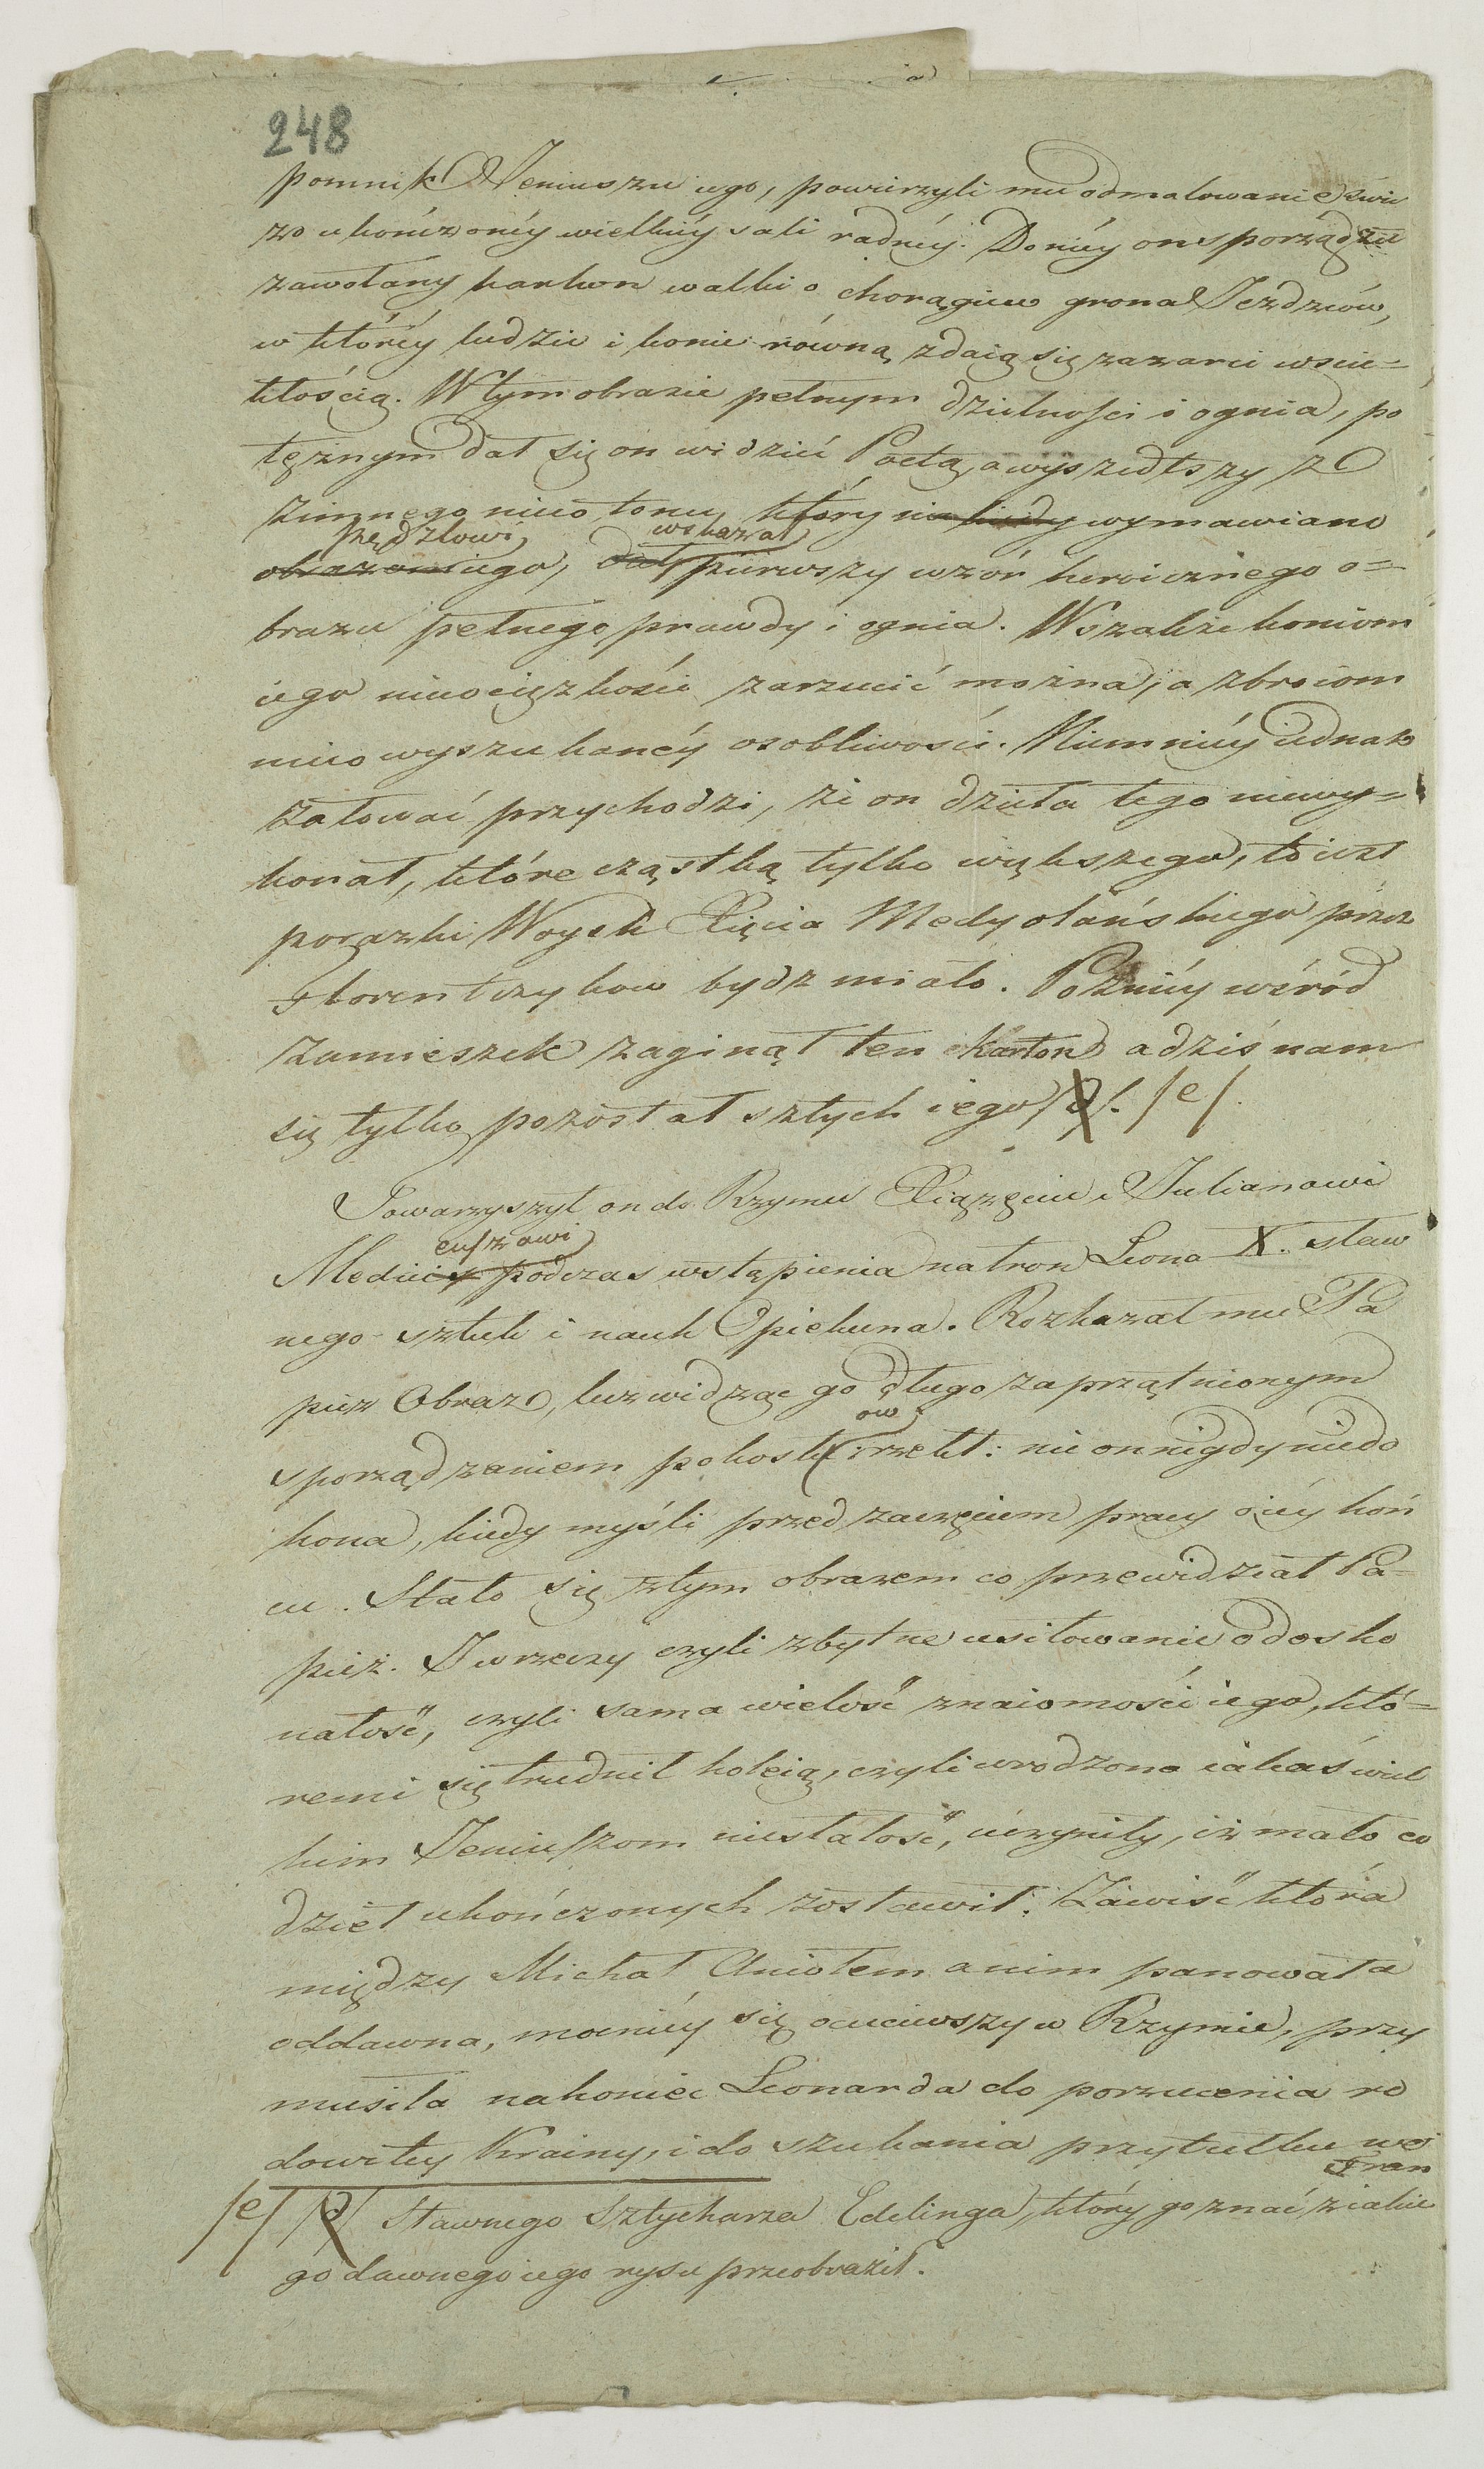 248
pomnik Jeniuszu iego, powierzyli mu odmalowanie świe
żo ukończonéy wielkiéy sali radnéy. Do niéy on sporządził
zawołany karton walki o chorągiew grona Jezdzców,
w któréy ludzie i konie równą zdaią się zażarci wście=
kłością. W tym obrazie pełnym dzielności i ognia, po
tężnym dał się on widzieć Poetą, a wyszedłszy z
zimnego nieco tonu, który niekiedy wymawiano
pędzlowi wskazał
obrazom iego, dał pierwszy wzór heroicznego o=
brazu pełnego prawdy i ognia. Wszakże koniom
iego nieco ciężkości zarzucić można, a zbroiom
nieco wyszukanéy osobliwości. Niemniéy iednak
żałować przychodzi, że on dzieła tego niewy=
konał, które cząstką tylko większego, to iest
porażki Woysk Xięcia Medyolańskiego przez
Florentczyków bydź miało. Pożniéy wśród
zamieszek zaginął ten karton a dziś nam
się tylko pozostał sztych iego /d/. /e/.
Towarzyszył on do Rzymu Xiążęciu Julianowi
euszowi
Medici podczas wstąpienia na tron Leona X. sław
nego sztuk i nauk Opiekuna. Rozkazał mu Pa
pież Obraz, lecz widząc go długo zaprzątnionym
ów
sporządzeniem pokost rzekł: nic on nigdy niedo
kona, kiedy myśli przed zaczęciem pracy o iéy koń
cu. Stało się z tym obrazem co przewidział Pa=
pież. J w rzeczy czyli zbytne usiłowanie o dosko
nałość, czyli sama wielość znaiomości iego, któ=
remi się trudnił koleią, czyli wrodzona iakaś wiel
kim Jeniuszom niestałość, uczyniły, iż mało co
dzieł ukończonych zostawił. Zawiść która
między Michał Aniołem a nim panowała
oddawna, mocniéy się ocuciwszy w Rzymie, przy
musiła nakoniec Leonarda do porzucenia ro
dowitéy Krainy, i do szukania przytułku we
Fran
/e/ /d/ Sławnego Sztycharza Edelinga, który go znać z iakie
go dawnego iego rysu przeobraził.